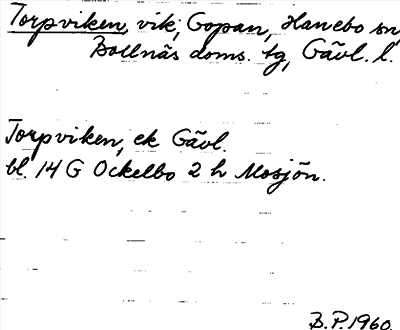 Torpviken, vik, Gopan, Hanebo sn,
Bollnäs doms. tg, Gävl. l.
Torpviken, ek Gävl.
bl. 14 G Ockelbo 2 h Mosjön.
B.P. 1960.